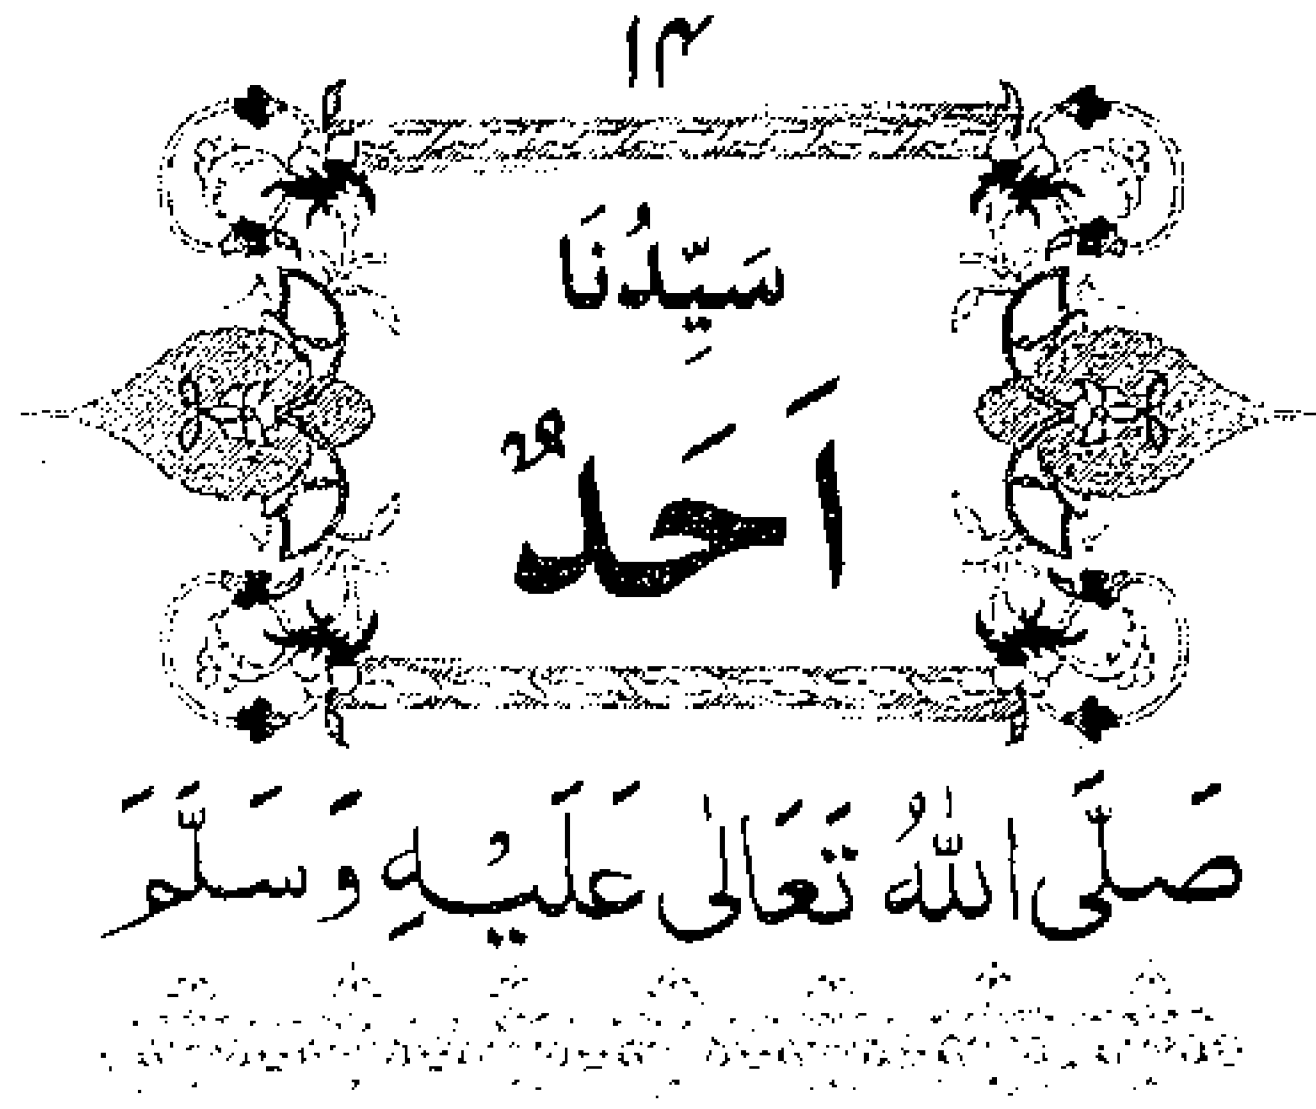 ۱۴
سَيِّدُنَا
اَحَدٌ
صَلَّى اللّٰهُ تَعَالٰى عَلَيْهِ وَسَلَّمَ